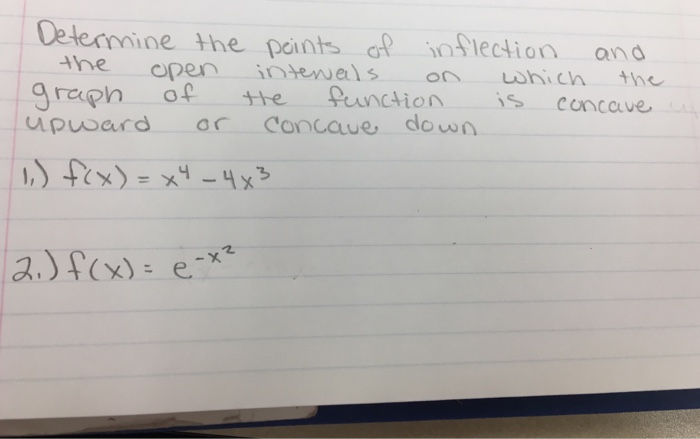 Determine the points of inflection and
the open intervals on which the
graph of the function is concave
upward or concave down
1.) f(x) = x⁴ - 4x³
2.) f(x) = e^-x²